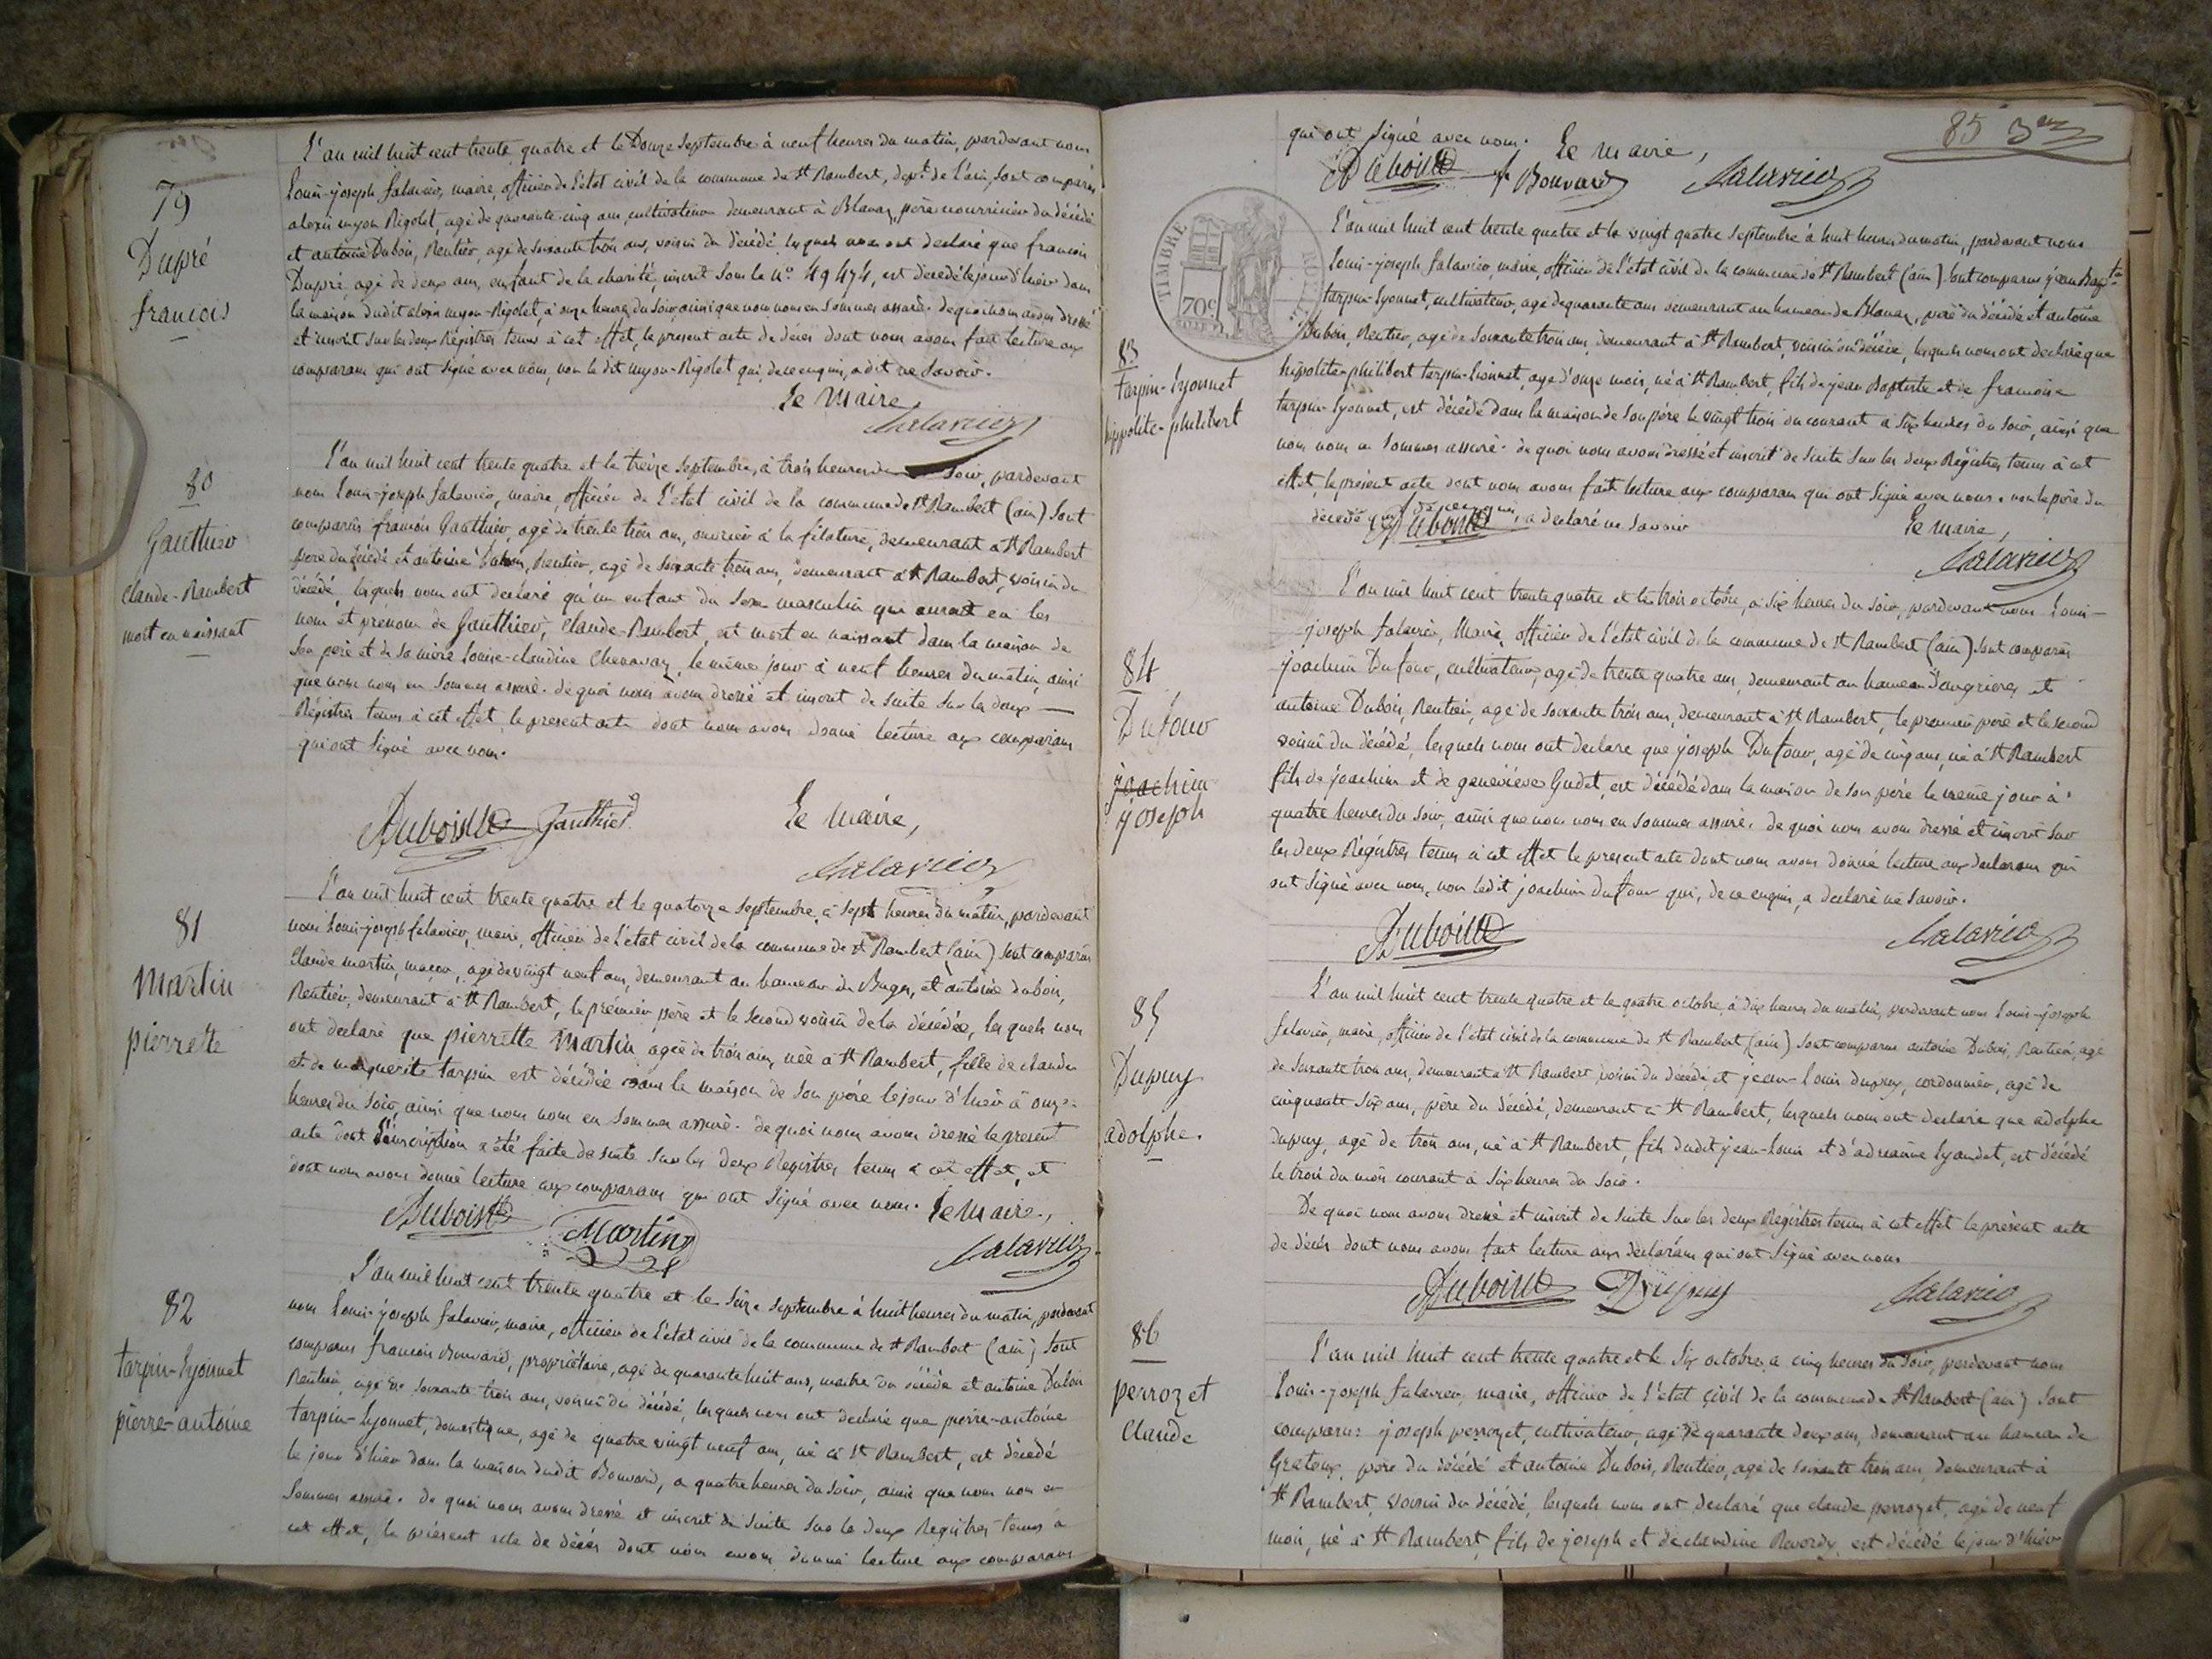 79
Dupré
francois
L'an mil huit cent trente quatre et le Douze septembre à neuf heures du matin, pardevant nous
Louis-joseph falavier, maire, officier de l'état civil de la commune de St Rambert, dept. de l'ain, sont comparus
alexis myon Rigolet, agé de quarante cinq ans, cultivateur demeurant à Blanaz, père nourricier du décédé
et antoine Dubois, Rentier, agé de soixante trois ans, voisin du décédé lesquels nous ont declaré que francois
Dupré, agé de deux ans, enfant de la charité, inscrit sous le No. 49474, est décédé le jour d'hier dans
la maison dudit alexis myon-Rigolet, à onze heures du soir ainsi que nous nous en sommes assuré. de quoi nous avons dressé
et inscrit sur les deux Régistres tenus à cet effet, le present acte de décès dont nous avons fait lecture aux
comparans qui ont signé avec nous, non le dit myon-Rigolet qui, de ce enquis, a dit ne savoir.
Le Maire
falavier
80
Gauthier
Claude-Rambert
mort en naissant
L'an mil huit cent trente quatre et le treize septembre, à trois heures du soir, pardevant
nous Louis-joseph falavier, maire, officier de l'état civil de la commune de St Rambert (ain) sont
comparus francois Gauthier, agé de trente trois ans, ouvrier à la filature, demeurant à St Rambert
père du décédé et antoine Dubois, Rentier, agé de soixante trois ans, demeurant à St Rambert, voisin du
décédé, lesquels nous ont déclaré qu'un enfant du sexe masculin qui aurait eu les
nom et prénom de Gauthier, Claude-Rambert, est mort en naissant dans la maison de
son père et de sa mère Louise-claudine Chenavaz, le même jour à neuf heures du matin, ainsi
que nous nous en sommes assuré. de quoi nous avons dressé et inscrit de suite sur les deux
Régistres tenus à cet effet, le present acte dont nous avons donné lecture aux comparans
qui ont signé avec nous.
Dubois Gauthier Le Maire,
falavier
81
Martin
pierrette
L'an mil huit cent trente quatre et le quatorze septembre, à sept heures du matin, pardevant
nous Louis-joseph falavier, maire, officier de l'état civil de la commune de St Rambert (ain) sont comparus
Claude martin, maçon, agé de vingt neuf ans, demeurant au hameau du Buges, et antoine dubois,
Rentier, demeurant à St Rambert, le prémier père et le second voisin de la décédée, lesquels nous
ont declaré que pierrette Martin, agée de trois ans, née à St Rambert, fille de claude
et de marguerite tarpin est décédée dans la maison de son père le jour d'hier à onze
heures du soir, ainsi que nous nous en sommes assuré. de quoi nous avons dressé le present
acte dont l'inscription a été faite de suite sur les deux Registres tenus à cet effet, et
dont nous avons donné lecture aux comparans qui ont signé avec nous. Le Maire,
Dubois Martin falavier
82
tarpin-Lyonnet
pierre-antoine
L'an mil huit cent trente quatre et le Seize septembre à huit heures du matin, pardevant
nous Louis-joseph falavier, maire, officier de l'état civil de la commune de St Rambert (ain) sont
comparus francois Bouvard, propriétaire, agé de quarante huit ans, maitre du décédé et antoine Dubois
Rentier, agé de soixante trois ans, voisin du décédé, lesquels nous ont declaré que pierre-antoine
tarpin-Lyonnet, domestique, agé de quatre vingt neuf ans, né à St Rambert, est décédé
le jour d'hier dans la maison dudit Bouvard, a quatre heures du soir, ainsi que nous nous en
sommes assuré. de quoi nous avons dressé et inscrit de suite sur les deux Registres tenus à
cet effet, le présent acte de décès dont nous avons donné lecture aux comparans
85
qui ont signé avec nous. Le Maire,
Dubois f Bouvard falavier
TIMBRE ROYAL
70c
83
tarpin-Lyonnet
hippolite-philibert
L'an mil huit cent trente quatre et le vingt quatre septembre à huit heures du matin, pardevant nous
Louis-joseph falavier, maire, officier de l'état civil de la commune de St Rambert (ain) sont comparus jean Bapte
tarpin-Lyonnet, cultivateur, agé de quarante ans demeurant au hameau de Blanaz, père du décédé et antoine
Dubois, Rentier, agé de soixante trois ans, demeurant à St Rambert, voisin du décédé, lesquels nous ont declaré que
hippolite-philibert tarpin-Lionnet, agé d'onze mois, né à St Rambert, fils de jean Baptiste et de francoise
tarpin-Lyonnet, est décédé dans la maison de son père le vingt trois du courant à six heures du soir, ainsi que
nous nous en sommes assuré. de quoi nous avons dressé et inscrit de suite sur les deux Régistres tenus à cet
effet, le présent acte dont nous avons fait lecture aux comparans qui ont signé avec nous. non le père du
décédé qui, de ce enquis, a declaré ne savoir
Dubois Le Maire,
falavier
84
Dufour
joachim
joseph
L'an mil huit cent trente quatre et le trois octobre, à six heures du soir, pardevant nous Louis-
joseph falavier, Maire, officier de l'état civil de la commune de St Rambert (ain) sont comparus
joachim Dufour, cultivateur, agé de trente quatre ans, demeurant au hameau d'angrieres et
antoine Dubois, Rentier, agé de soixante trois ans, demeurant à St Rambert, le premier père et le second
voisin du décédé, lesquels nous ont declaré que joseph Dufour, agé de cinq ans, né à St Rambert
fils de joachim et de geneviève Gudet, est décédé dans la maison de son père le même jour à
quatre heures du soir, ainsi que nous nous en sommes assuré. de quoi nous avons dressé et inscrit sur
les deux Régistres tenus à cet effet le present acte dont nous avons donné lecture aux declarans qui
ont signé avec nous, non ledit joachim dufour qui, de ce enquis, a declaré ne savoir.
Dubois falavier
85
Dupuy
adolphe.
L'an mil huit cent trente quatre et le quatre octobre, à dix heures du matin, pardevant nous Louis-joseph
falavier, maire, officier de l'état civil de la commune de St Rambert (ain) sont comparus antoine Dubois, Rentier, agé
de soixante trois ans, demeurant à St Rambert, voisin du décédé, et jean Louis dupuy, cordonnier, agé de
cinquante six ans, père du décédé, demeurant à St Rambert, lesquels nous ont declaré que adolphe
dupuy, agé de trois ans, né à St Rambert, fils dudit jean-Louis et d'adrianne Lyaudet, est décédé
le trois du mois courant à six heures du soir.
De quoi nous avons dressé et inscrit de suite sur les deux Régistres tenus à cet effet le présent acte
de décès dont nous avons fait lecture aux declarans qui ont signé avec nous
Dubois Dupuy falavier
86
perrozet
Claude
L'an mil huit cent trente quatre et le six octobre, à cinq heures du soir, pardevant nous
Louis-joseph falavier, maire, officier de l'état civil de la commune de St Rambert (ain) sont
comparus joseph perrozet, cultivateur, agé de quarante deux ans, demeurant au hameau de
Gratoux, père du décédé et antoine Dubois, Rentier, agé de soixante trois ans, demeurant à
St Rambert, voisin du décédé, lesquels nous ont declaré que claude perrozet, agé de neuf
mois, né à St Rambert, fils de joseph et de claudine Reverdy, est décédé le jour d'hier